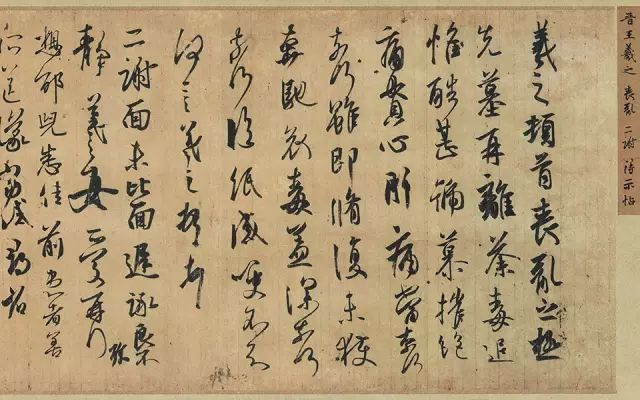 晉王羲之 喪亂 二謝 得示帖
羲之頓首喪亂之極
先墓再離荼毒追
惟酷甚號慕摧絕
痛貫心肝痛當奈何
奈何雖即脩復未獲
奔馳哀毒益深奈何
奈何臨紙感哽不知
何言羲之頓首頓首
二謝面未比面遲詠良不
靜羲之女愛再拜
想邵兒悉佳前患者善